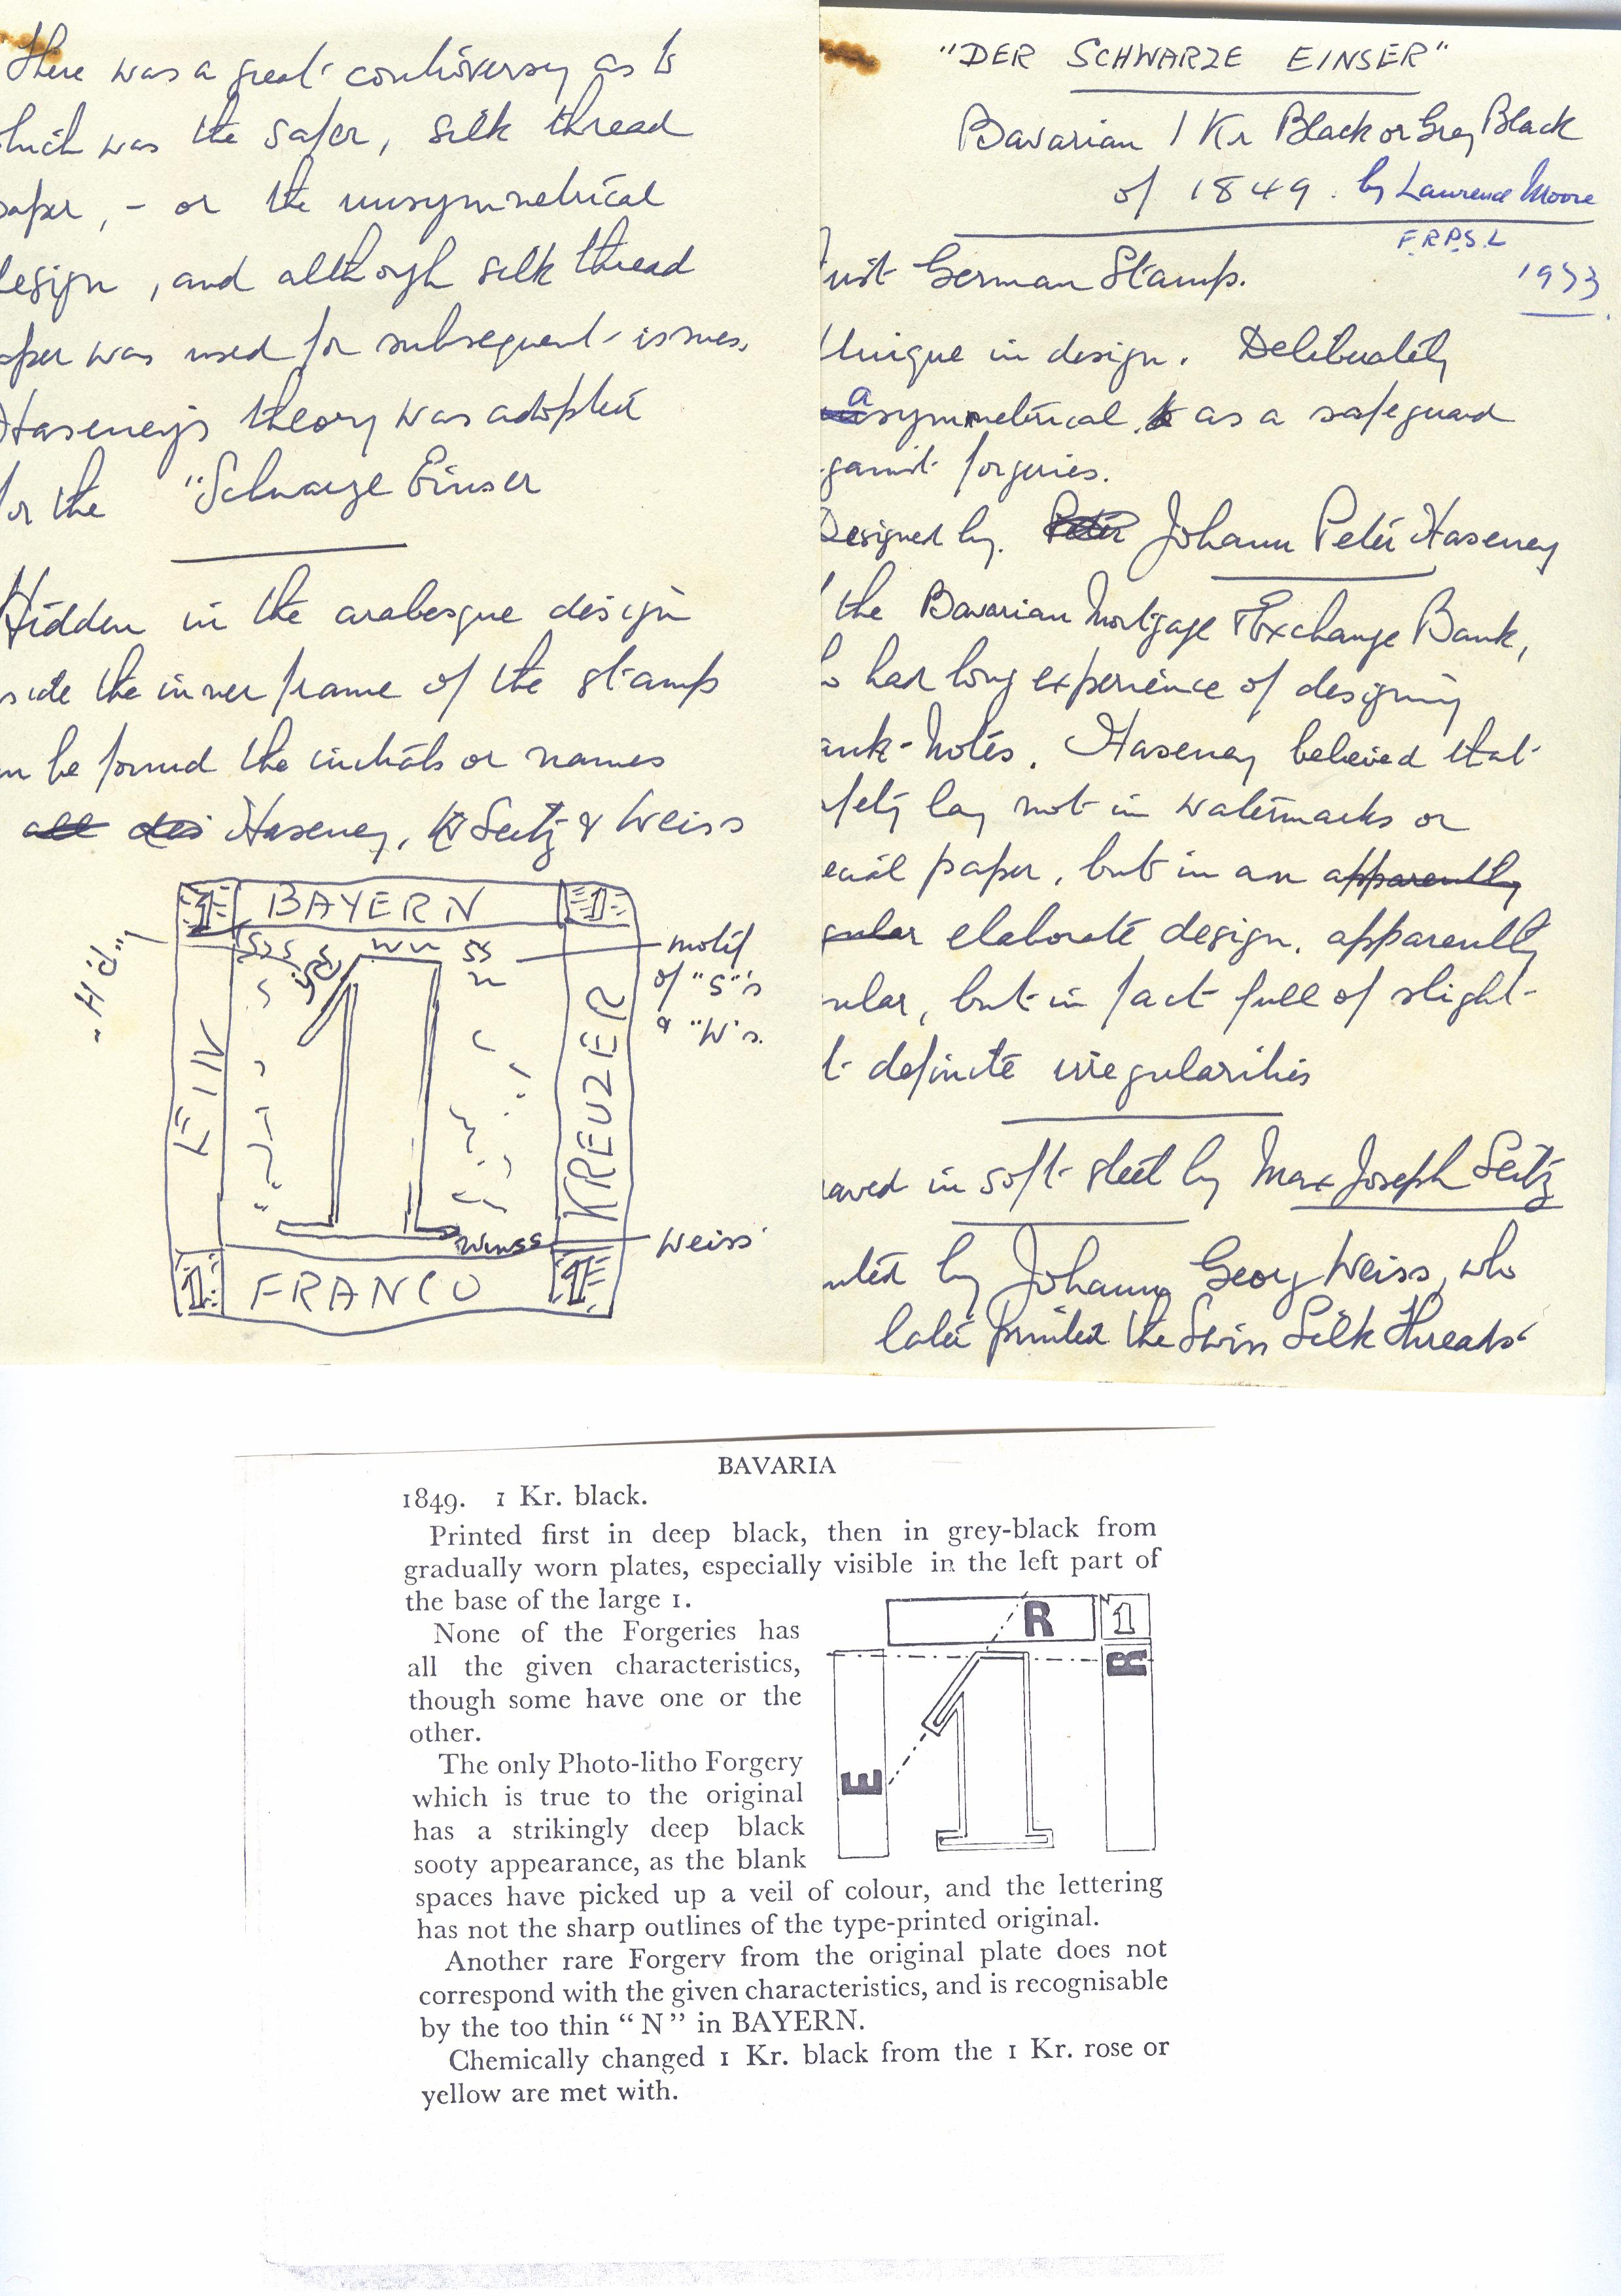 "DER SCHWARZE EINSER"
Bavarian 1 Kr Black or Grey Black
of 1849. by Laurence Moore
F.R.P.S.L
1933.
German Stamp.
Unique in design. Deliberately
asymmetrical as a safeguard
gainst forgeries.
Designed by. Peter Johann Peter Haseney
the Bavarian Mortgage Exchange Bank,
o had long experience of designing
ank-Notes. Haseney believed that
fety lay not in watermarks or
ecial paper, but in an apparently
gular elaborate design, apparently
ular, but in fact full of slight
t definite irregularities
raved in soft steel by Max Joseph Seitz
nted by Johann Georg Weiss, who
later printed the Swiss Silk Threads
There was a great controversy as to
which was the safer, silk thread
paper, - or the unsymmetrical
design, and although silk thread
aper was used for subsequent issues,
Haseney's theory was adopted
for the "Schwarze Einser
Hidden in the arabesque design
side the inner frame of the stamp
n be found the initials or names
all Haseney, Seitz & Weiss
1 BAYERN 1
SSS WW SS
motif
of "S"'s
& "W"'s.
EIN
KREUZER
Weiss
1 FRANCO 1
BAVARIA
1849. 1 Kr. black.
Printed first in deep black, then in grey-black from
gradually worn plates, especially visible in the left part of
the base of the large 1.
None of the Forgeries has
all the given characteristics,
though some have one or the
other.
The only Photo-litho Forgery
which is true to the original
has a strikingly deep black
sooty appearance, as the blank
spaces have picked up a veil of colour, and the lettering
has not the sharp outlines of the type-printed original.
Another rare Forgery from the original plate does not
correspond with the given characteristics, and is recognisable
by the too thin "N" in BAYERN.
Chemically changed 1 Kr. black from the 1 Kr. rose or
yellow are met with.
R 1
R
E
1